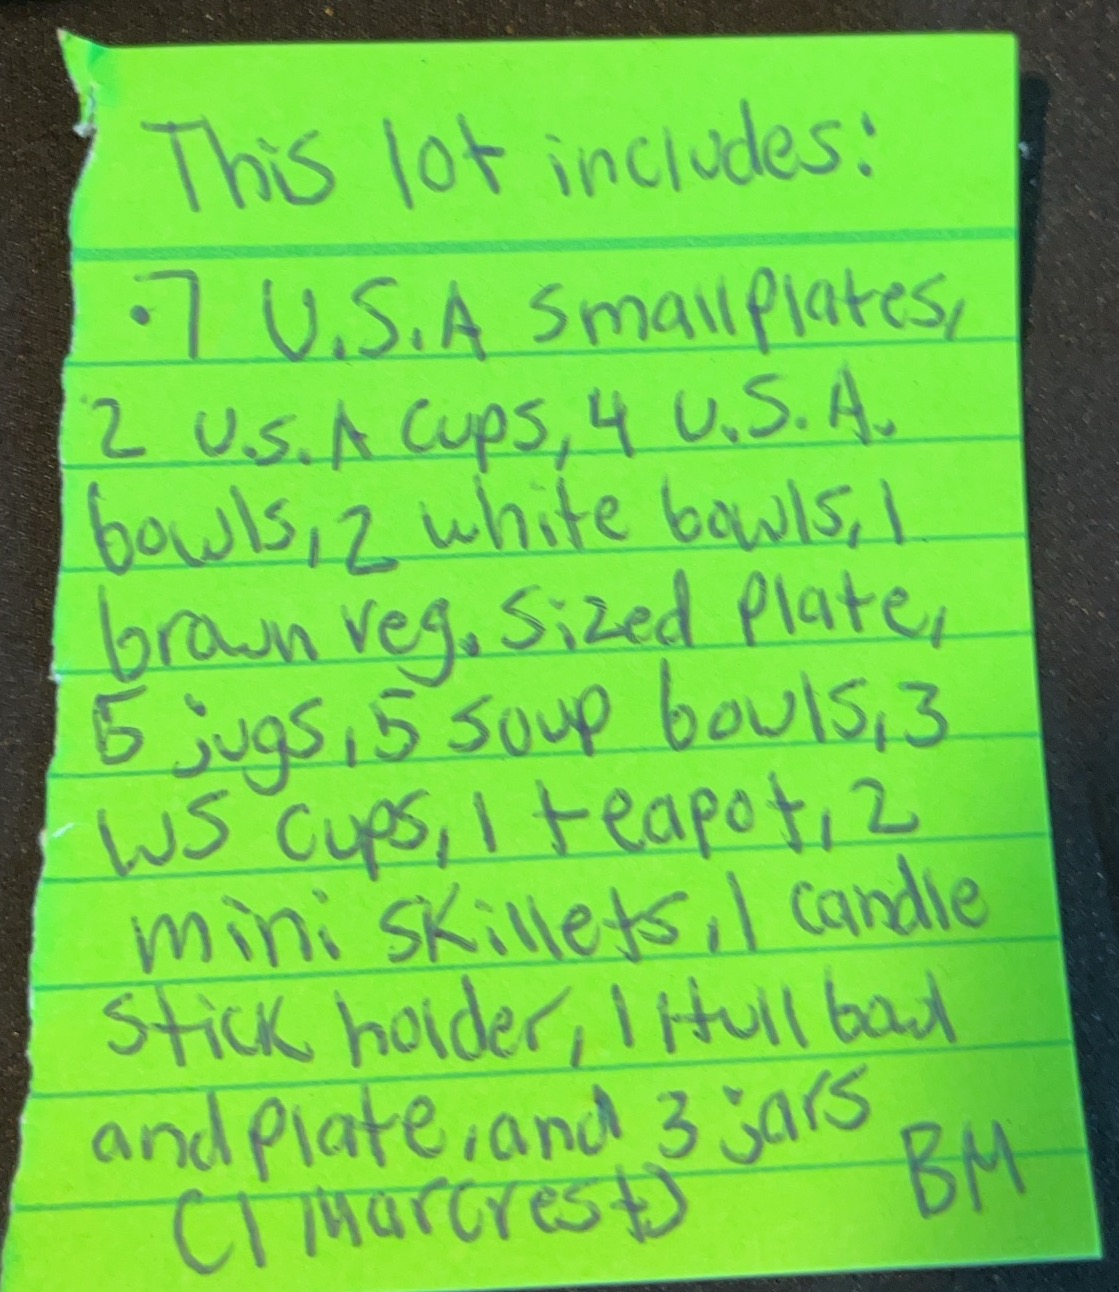 This lot includes:
•7 U.S.A smallplates,
2 U.S.A cups, 4 U.S.A.
bowls, 2 white bowls, 1
brown reg. sized plate,
5 jugs, 5 soup bowls, 3
WS cups, 1 teapot, 2
mini skillets, 1 candle
stick holder, 1 Hull bowl
and plate, and 3 jars
(1 Marcrest) BM